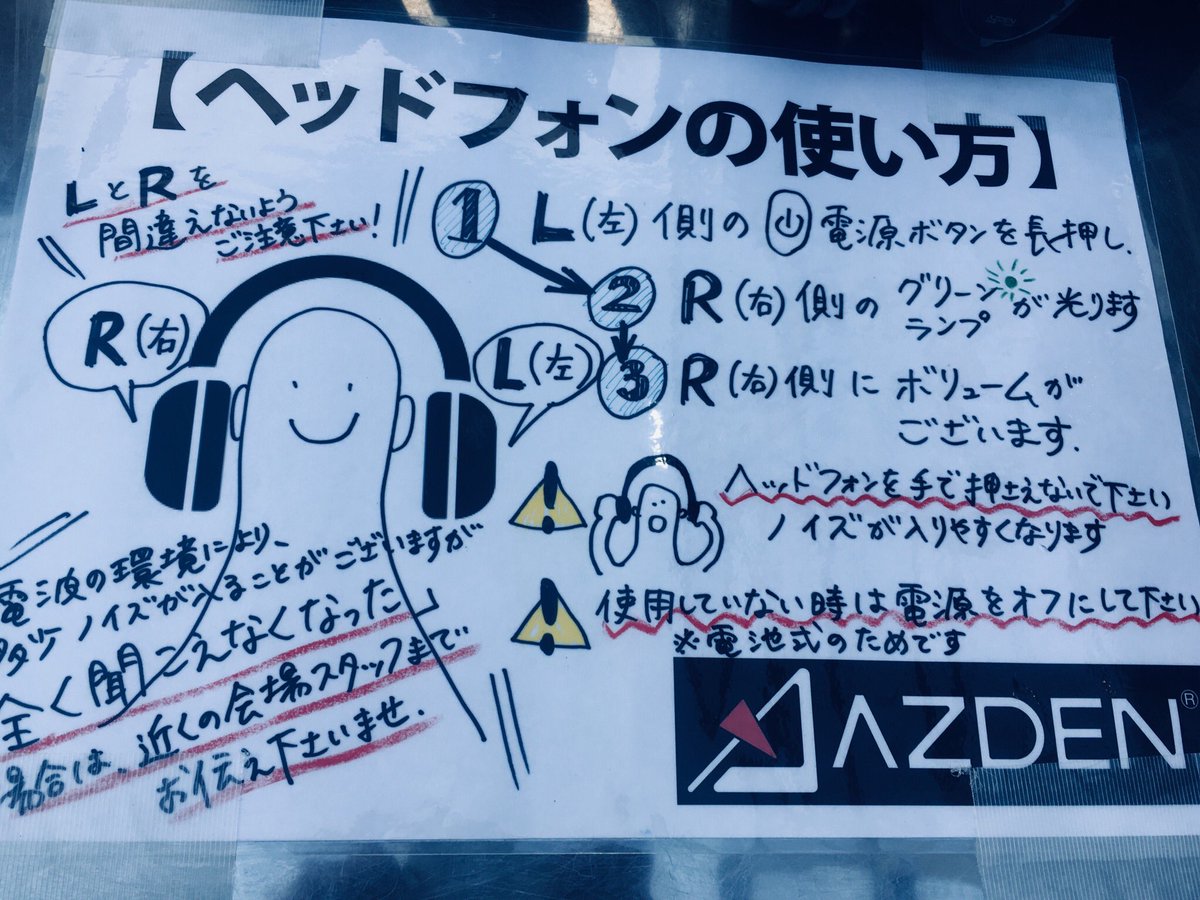 【ヘッドフォンの使い方】
LとRを
間違えないよう
ご注意下さい!
R(右)
L(左)
1 L(左)側の 電源ボタンを長押し.
2 R(右)側の グリーンランプ が光ります
3 R(右)側に ボリュームが
ございます.
ヘッドフォンを手で押さえないで下さい
ノイズが入りやすくなります
使用していない時は電源をオフにして下さい
※電池式のためです
電波の環境により、
多少ノイズが入ることがございますが
全く聞こえなくなった」
場合は、近くの会場スタッフまで
お伝え下さいませ.
AZDEN®